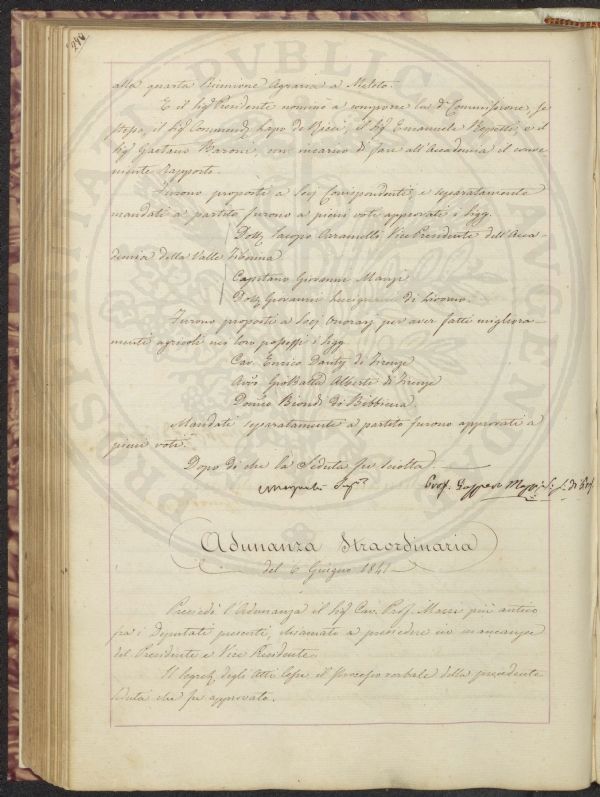 alla quarta Riunione Agraria a Meleto.
E il Sig. Presidente nominò a comporre la dª Commissione, se
stesso, il Sig. Commend. Lapo de Ricci, il Sig. Emanuele Repetti, e il
Sig. Gaetano Baroni, con incarico di fare all'Accademia il conve-
niente Rapporto.
Furono proposti a Socj Corrispondenti, e separatamente
mandati a partito furono a pieni voti approvati i Sigg.
Dott. Jacopo Caramelli Vice Presidente dell'Acca-
demia della Valle Tiberina
Capitano Giovanni Manzi
Dott. Giovanni di Livorno.
Furono proposti a Socj Onorarj per aver fatti migliora-
menti agricoli nei loro possessi i Sigg.
Cav. Enrico Danty di Firenze
Avv. Gio Batta Alberti di Firenze
Domco Biondi di Bibbiena
Mandati separatamente a partito furono approvati a
pieni voti.
Dopo di che la Seduta fu sciolta
Prof. Gasp.
Adunanza Straordinaria
del 6 Giugno 1841
Presiedè l'Adunanza il Sig. Cav. Prof. più antico
fra i Deputati presenti, chiamato a presiedere in mancanza
del Presidente e Vice Presidente.
Il Segret. degli Atti lesse il Processo verbale della precedente
seduta che fu approvato.
PUBLICAE
AUGENDAE
PROSPERITATI